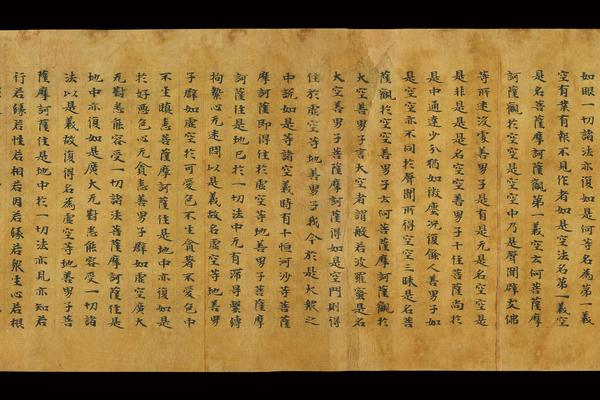 如眼一切諸法亦復如是何等名為第一義
空有業有報不見作者如是空法名第一義空
是名菩薩摩訶薩觀第一義空云何菩薩摩
訶薩觀於空空是空空中乃是聲聞辟支佛
等所迷沒處善男子是有是无是名空空是
是非是是是名空空善男子十住菩薩尚於
是中通達少分猶如微塵況復餘人善男子如
是空空亦不同於聲聞所得空空三昧是名菩
薩觀於空空善男子云何菩薩摩訶薩觀於
大空善男子言大空者謂般若波羅蜜是名
大空善男子菩薩摩訶薩得如是空門則得
住於虛空等地善男子我今於是大眾之
中說如是等諸空義時有十恒河沙等菩薩
摩訶薩即得住於虛空等地善男子菩薩摩
訶薩住是地已於一切法中无有滯导繫縛
拘執心无迷悶以是義故名虛空等地善男
子辟如虛空於可愛色不生貪著不愛色中
不生瞋恚菩薩摩訶薩住是地中亦復如是
於好惡色心无貪恚善男子辟如虛空廣大
无對悉能容受一切諸法菩薩摩訶薩住是
地中亦復如是廣大无對悉能容受一切諸
法以是義故復得名為虛空等地善男子菩
薩摩訶薩住是地中於一切法亦見亦知若
行若緣若性若相若因若緣若眾生心若根